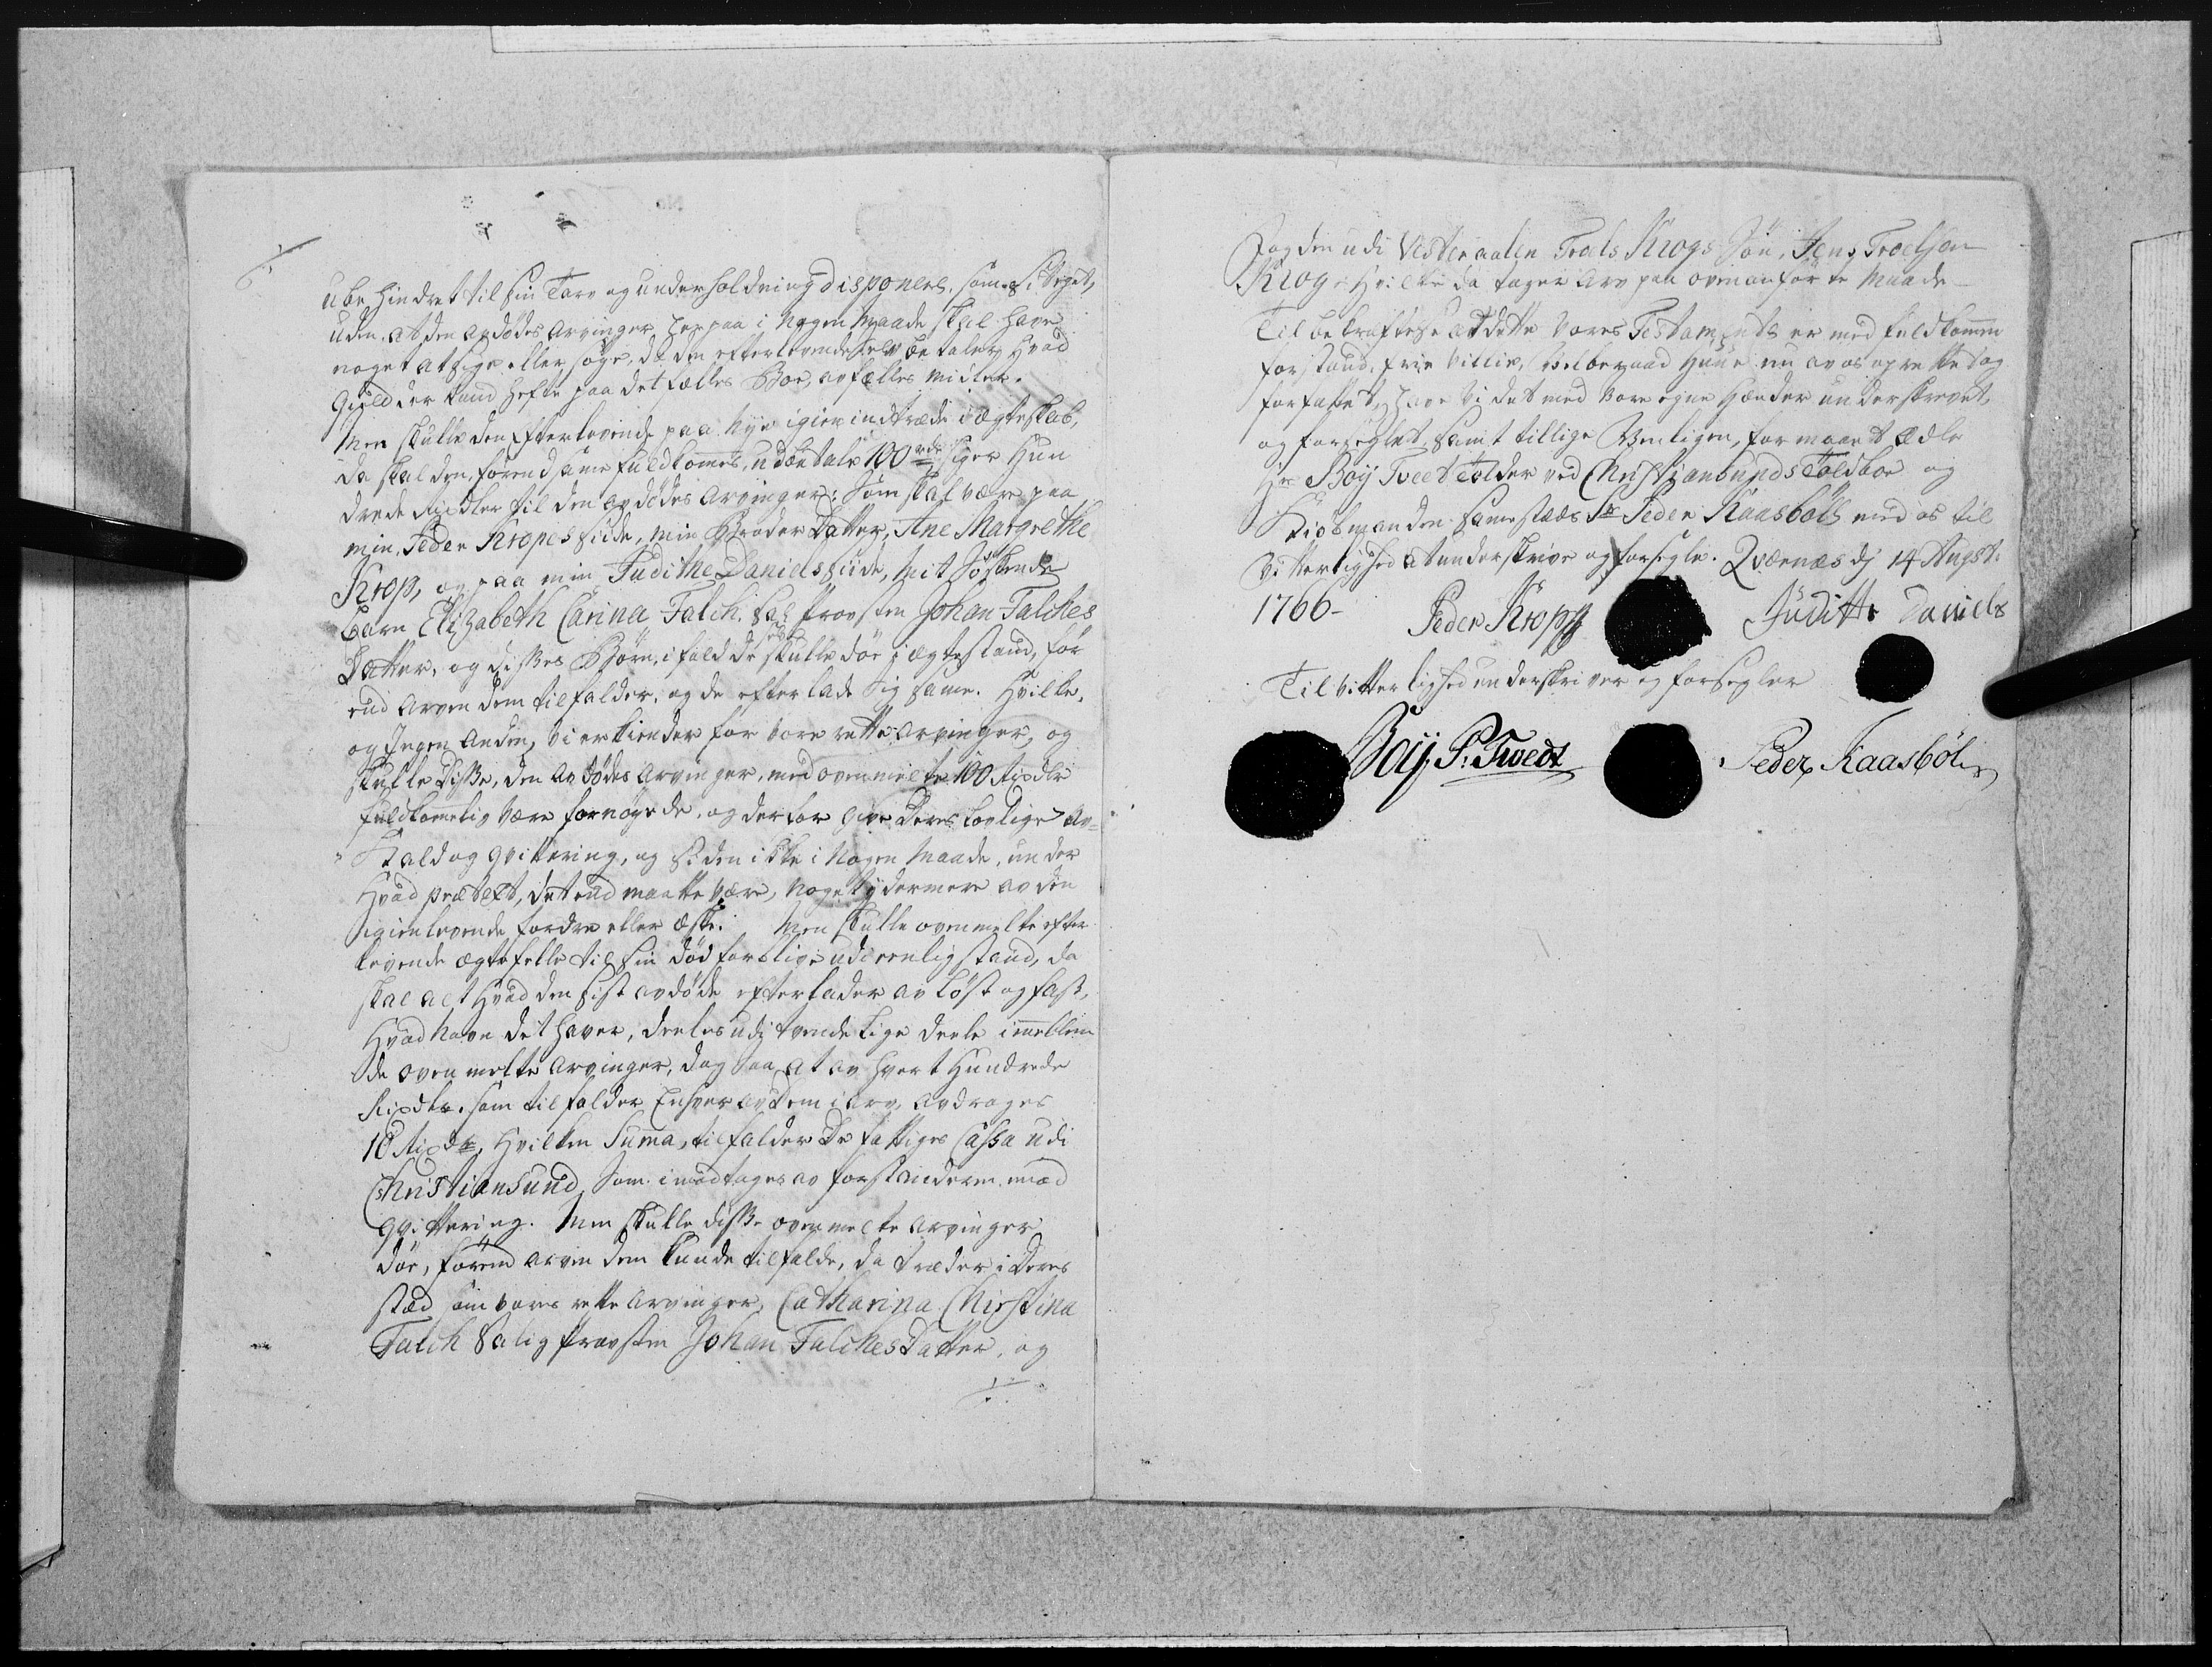 ube hindret til sin Tarv og underholdning disponere, som sit eget,
uden at den afdødes arvinger herpaa i nogen maade skal have
noget at sige eller søge, da den efterlevende selv betaler hvad
Gield der kand hefte paa det fælles Boe, av fælles midler.
Men skulle den Efterlevende paa Nye igien indtræde i ægteskab,
da skal den, førend same fuldkommes, udbetale 100 rdr siger Hun
drede Rixdler til den avdødes Arvinger: som skal være paa
min, Peder Kropes siide, min Broder Datter, Ane Margrethe
Krop, og paa min Judithe Daniels siide, mit Søskende
barn Elizabeth Carina Falch, Sal: Provsten Johan Falches
Datter, og disses Børn, ifald de skulle døe i ægtestand, før
end arven dem tilfalder, og de efterlade sig same. Hvilke,
og Ingen Anden, Vi erkiender for vore rette arvinger, og
skulle disse, den avdødes arvinger, med ovenmelte 100 Rixdlr
fuldkommelig være fornøyede, og derfor give Deres lovlige Av-
kald og qvitering, og siden ikke i Nogen Maade, under
Hvad prætext, det end maatte være, noget ydermere av den
igienlevende fordre eller æske. Men skulle ovenmelte efter
levende ægtefelle til sin død forblive udi eenlig stand, da
skal alt hvad den sist avdøde efterlader av Løst og fast,
Hvad Navn det haver, deeles udi tvende lige deele imellem
de ovenmelte arvinger, dog saa, at av hvert Hundrede
Rixdlr. som tilfalder Enhver av dem i arv, avdrages
10 Rixdlr, hvilken Suma, tilfalder De fattiges Cassa udi
Christiansund, som imodtages av forstanderen mod
qvittering. Men skulle disse ovenmelte arvinger
døe, førend arven dem kunde tilfalde, da træder i Deres
stæd som vores rette arvinger, Catharina Chirstina
Falch Salig Provsten Johan Falches Datter, og
Fogden udi Vesteraalen Troels Krogs Søn, Jens Troelsen
Krog: Hvilke da tager Arv paa ovenanførte Maade
Til bekræftelse at dette vores Testamente er med fuldkommen
forstand, frie Villie, velberaad Hue nu av os oprettet og
forfattet, have Vi det med vore egne Hænder underskrevet,
og forseglet, samt tillige Venligen formaaet ædle
Hr Boÿ Tveet Tolder ved Christiansunds Toldboe og
Kiøbmanden samestæds Sr Peder Kaasbøll med os til
Vitterlighed at underskrive og forsegle. Qværnæs dj 14 Augst:
1766- Peder Kropp Juditte Daniels
Til vitterlighed underskriver og forsegler
Boÿ P: Twedt Peder Kaasbøll